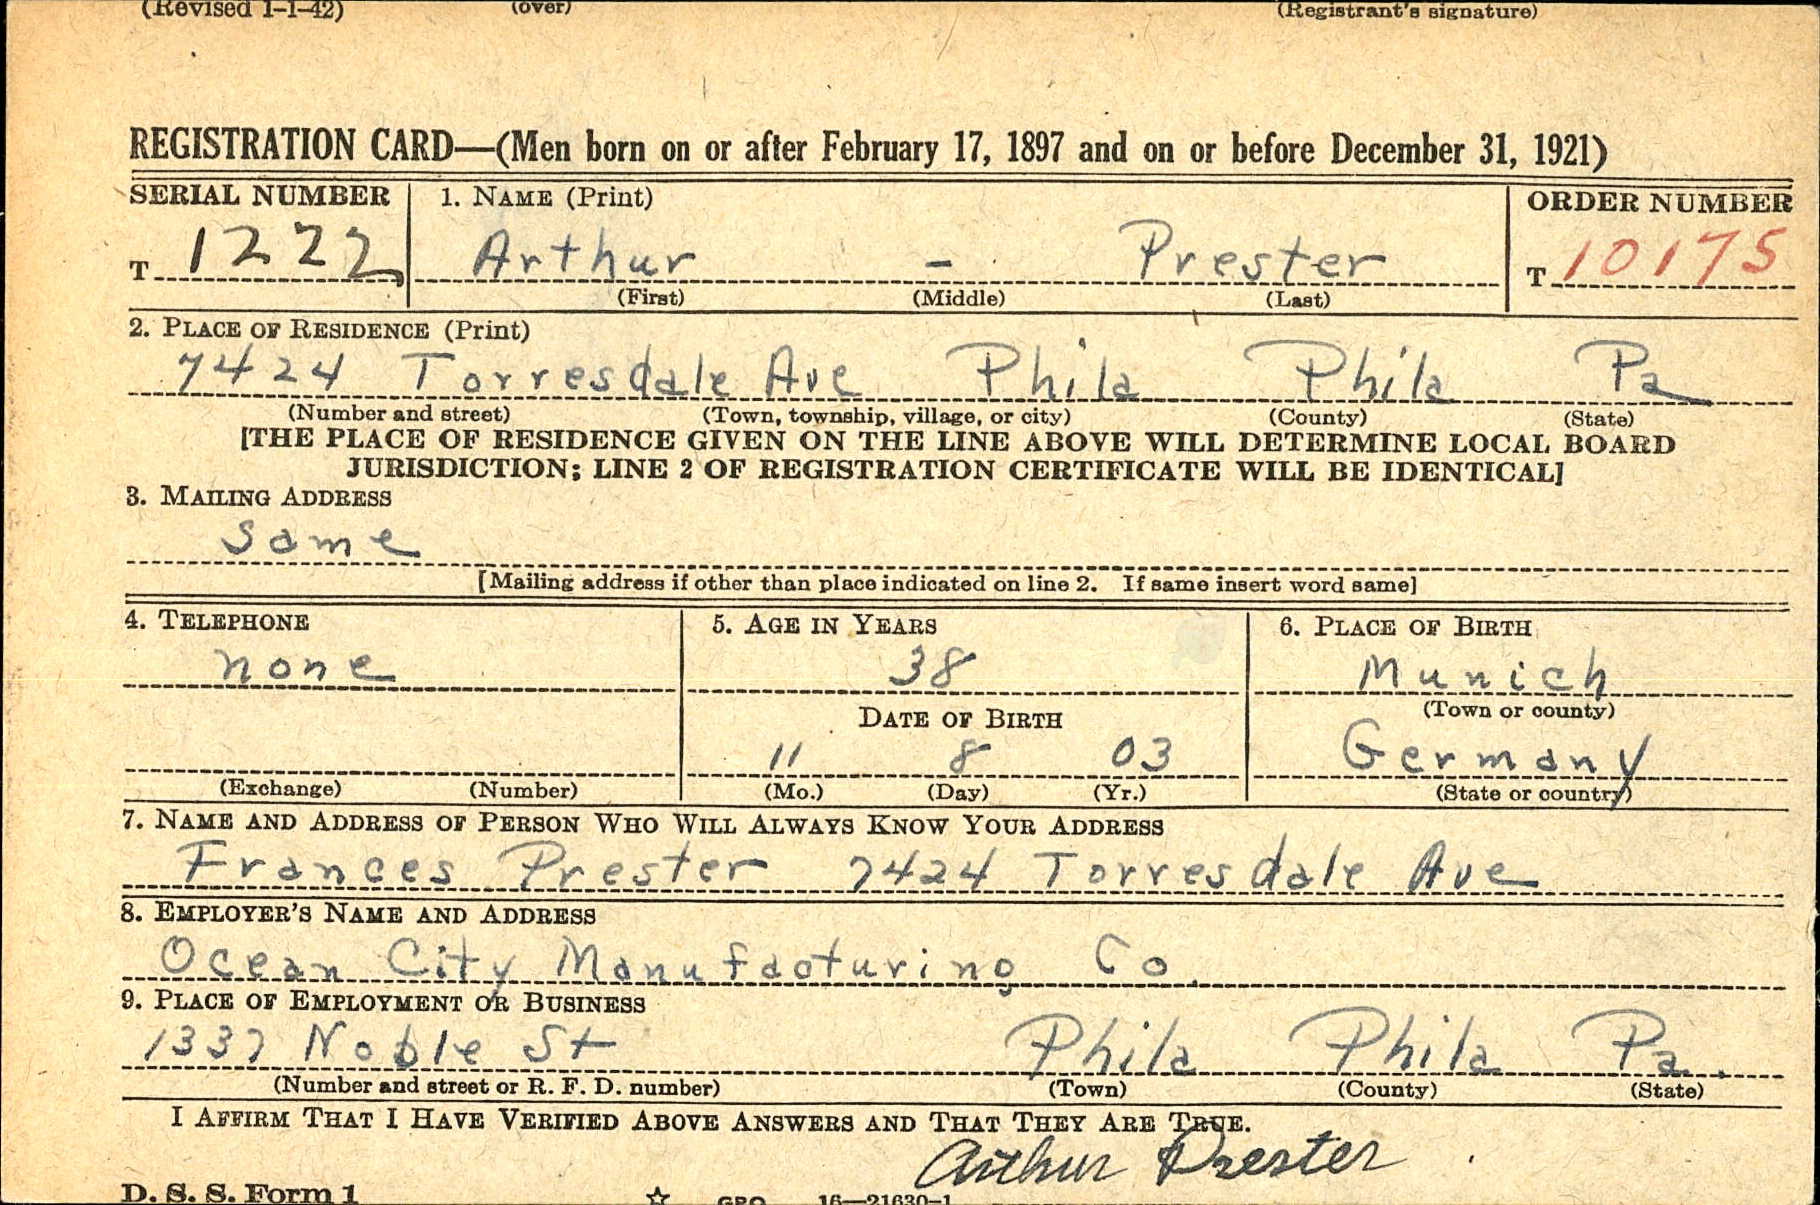 (Revised 1-1-42) (over) (Registrant's signature)
REGISTRATION CARD—(Men born on or after February 17, 1897 and on or before December 31, 1921)
SERIAL NUMBER 1. NAME (Print) ORDER NUMBER
T 1222 Arthur - Prester T 10175
(First) (Middle) (Last)
2. PLACE OF RESIDENCE (Print)
7424 Torresdale Ave Phila Phila Pa
(Number and street) (Town, township, village, or city) (County) (State)
[THE PLACE OF RESIDENCE GIVEN ON THE LINE ABOVE WILL DETERMINE LOCAL BOARD
JURISDICTION; LINE 2 OF REGISTRATION CERTIFICATE WILL BE IDENTICAL]
3. MAILING ADDRESS
Same
[Mailing address if other than place indicated on line 2. If same insert word same]
4. TELEPHONE 5. AGE IN YEARS 6. PLACE OF BIRTH
none 38 Munich
DATE OF BIRTH (Town or county)
11 8 03 Germany
(Exchange) (Number) (Mo.) (Day) (Yr.) (State or country)
7. NAME AND ADDRESS OF PERSON WHO WILL ALWAYS KNOW YOUR ADDRESS
Frances Prester 7424 Torresdale Ave
8. EMPLOYER'S NAME AND ADDRESS
Ocean City Manufacturing Co.
9. PLACE OF EMPLOYMENT OR BUSINESS
1337 Noble St Phila Phila Pa.
(Number and street or R. F. D. number) (Town) (County) (State)
I AFFIRM THAT I HAVE VERIFIED ABOVE ANSWERS AND THAT THEY ARE TRUE.
Arthur Prester
D. S. S. Form 1 ☆ GPO 16—21630-1